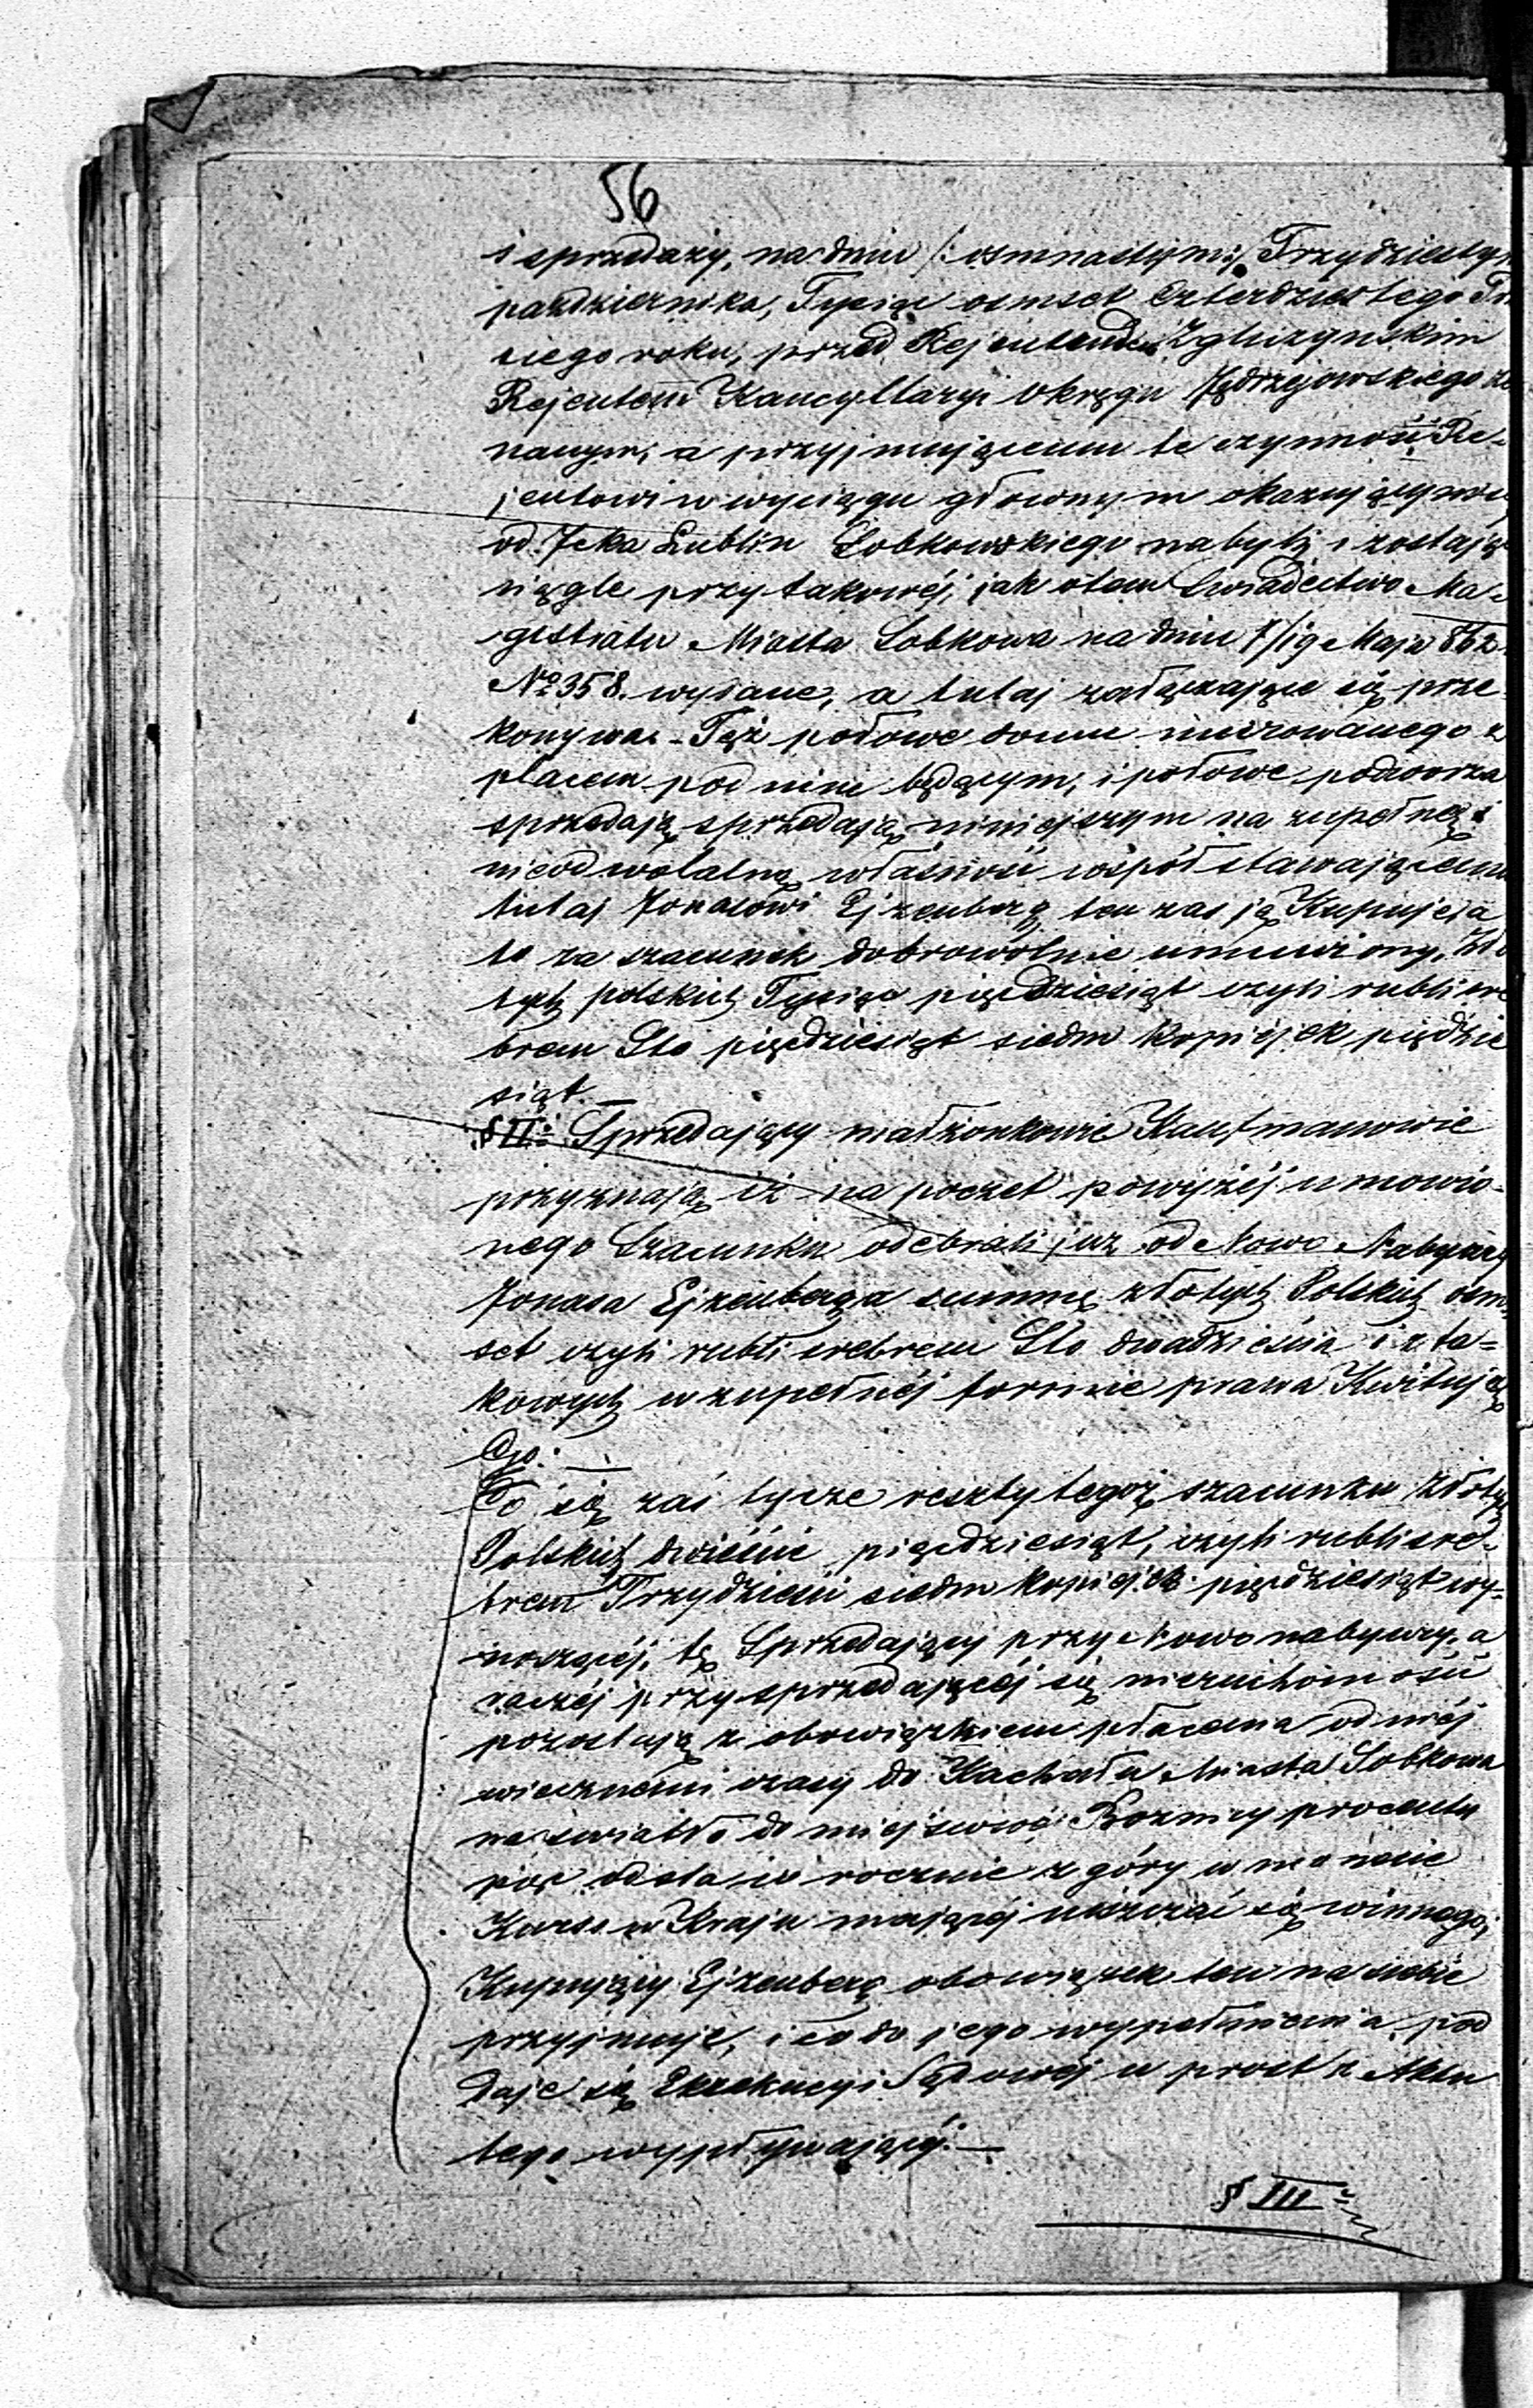 56
i sprzedaży, na dniu /: osmnastym :/ Trzydziestym
października, Tysiąc osmset Czterdziestego
ciego roku, przed Rejentem Zgliczyńskim
Rejentem Kancyllaryi Okręgu Jędrzejowskiego
nanym, a przyjmującemu te czynność Re-
jentowi w wyciągu głownym okazującym
od Icka Lublin Sobkowskiego nabyli i zostają
ciągle przy takowéj, jak o tem Swiadectwo Ma-
gistratu Miasta Sobkowa na dniu 7/19 Maja 862
No 358. wydane, a tutaj załączające się prze
konywa - Tęż połowe domu murowanego z
placem pod nim będącym, i połowe podworza
sprzedają, sprzedają niniejszym na zupełną i
nieodwołalną własność współstawającemu
tutaj Jonasowi Ejzenberg, ten zaś ją Kupuje, a
to za szacunek dobrowolnie umuwiony, Zło
tych polskich Tysiąc pięćdziesiąt czyli rubli sre
brem Sto pięćdziesiąt siedm kopiejek pięćdzie
siąt. —
§ II. Sprzedający małżonkowie Kaufmanowie
przyznają iż na poczet powyżéj umowio-
nego Szacunku odebrali już od Nowo Nabywcy
Jonasa Ejzenberga summę złotych Polskich osm
set czyli rubli srebrem Sto dwadzieścia i z ta-
kowych w zupełnéj formie prawa Kwitują
Go. —
Co się zaś tycze reszty tegoż szacunku złotych
Polskich dwieście pięćdziesiąt, czyli rubli sre-
brem Trzydzieści siedm kopiejek pięćdziesiąt wy-
noszącéj, tę Sprzedający przy Nowonabywcy, a
raczéj przy sprzedającéj się nieruchomości
pozostują z obowiązkiem płacenia od niéj
wiecznemi czasy do Kachału Miasta Sobkowa
na swiatło do miejscowéj Bóznicy procentu
pięć od sta i rocznie z góry w monecie
Kurs w Kraju mającéj uiszczać się winnego,
Kupujący Ejzenberg obowiązek ten na siebie
przyjmuje, i co do jego wypełnienia pod
daje się Exekucyi Sądowéj w prost z Aktu
tego wypływającéj. —
§ III